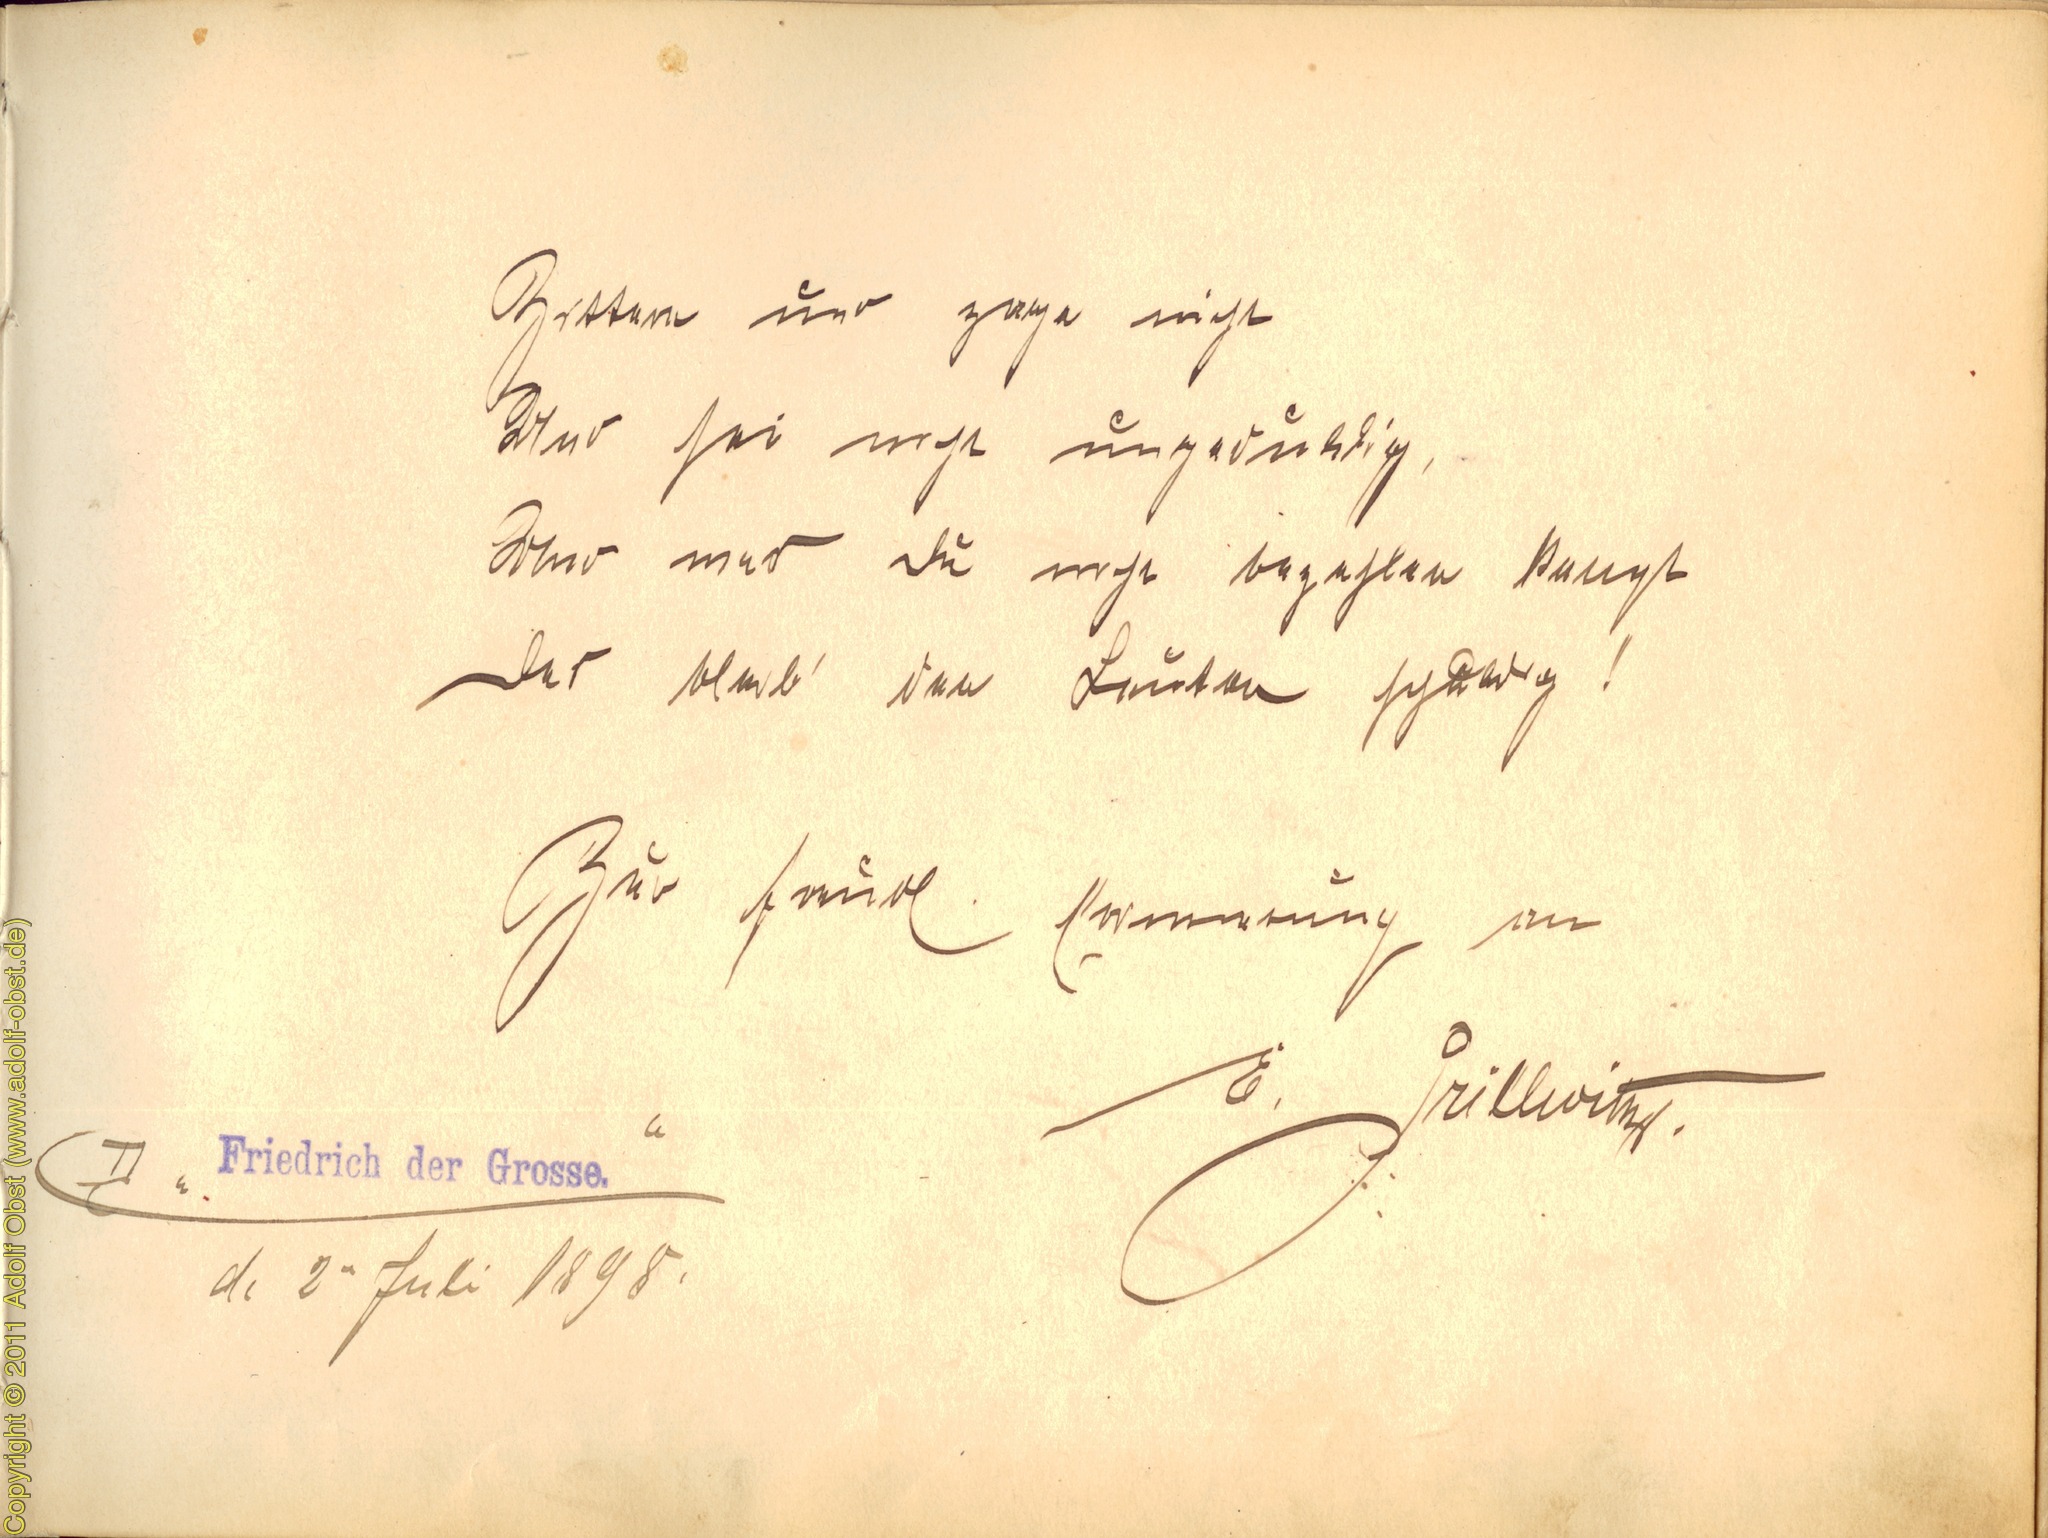 Zittere und zage nicht
Und sei nicht ungeduldig,
Und was Du nicht bezahlen kannst
Das bleib' den Leuten schuldig!
Zur freundl. Erinnerung an
E. Prillwitz.
II „Friedrich der Grosse.“
d. 2ⁿ Juli 1898.
Copyright © 2011 Adolf Obst (www.adolf-obst.de)